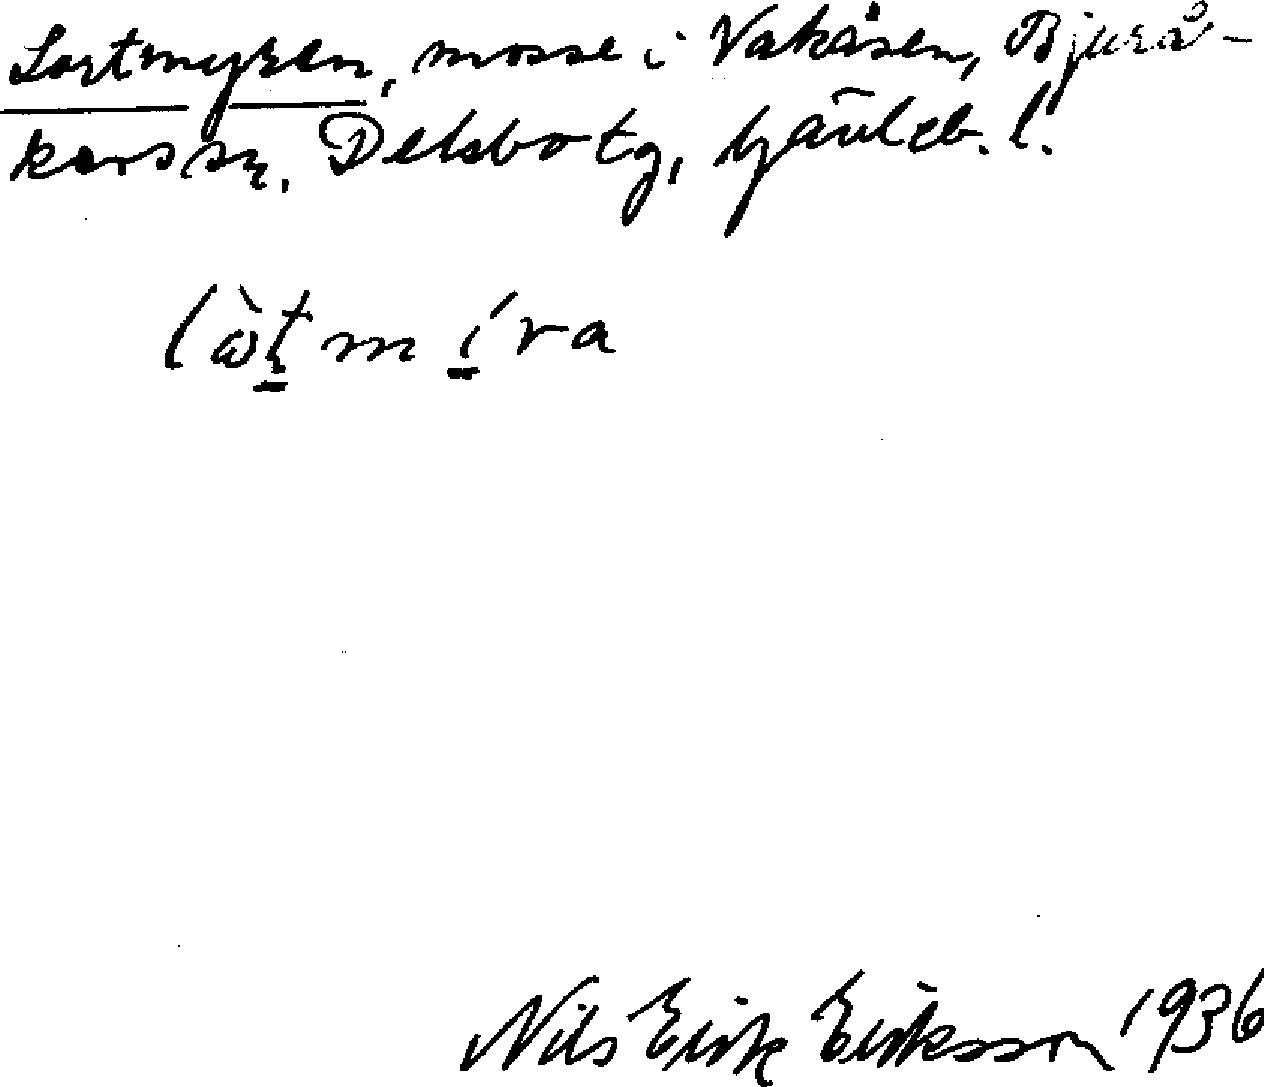 Lortmyren, mosse i Vakåsen, Bjurå-
kers sn, Delsbo tg, Gävleb. l.
lòt míra
Nils Erik Eriksson 1936